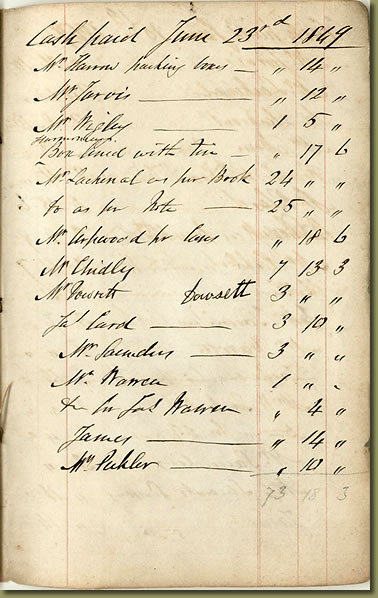 Cash paid June 23rd 1849
Mr Harrow packing boxes — „ 14 „
Mr Jarvis — „ 12 „
Mr Wigley — 1 5 „
Box lined with tin — „ 17 6
Mr Lachenal as per Book 24 „ „
Do as per Note — 25 „ „
Mr Arpwood for Cases „ 18 6
Mr Chidly 7 13 3
Mr Dowsett Dowsett 3 „ „
Jas Card — 3 10 „
Mr Saunders — 3 „ „
Mr Warren 1 „ „
Do for Jas Warren „ 4 „
James — „ 14 „
Mr Pichler — „ 10 „
73 18 3